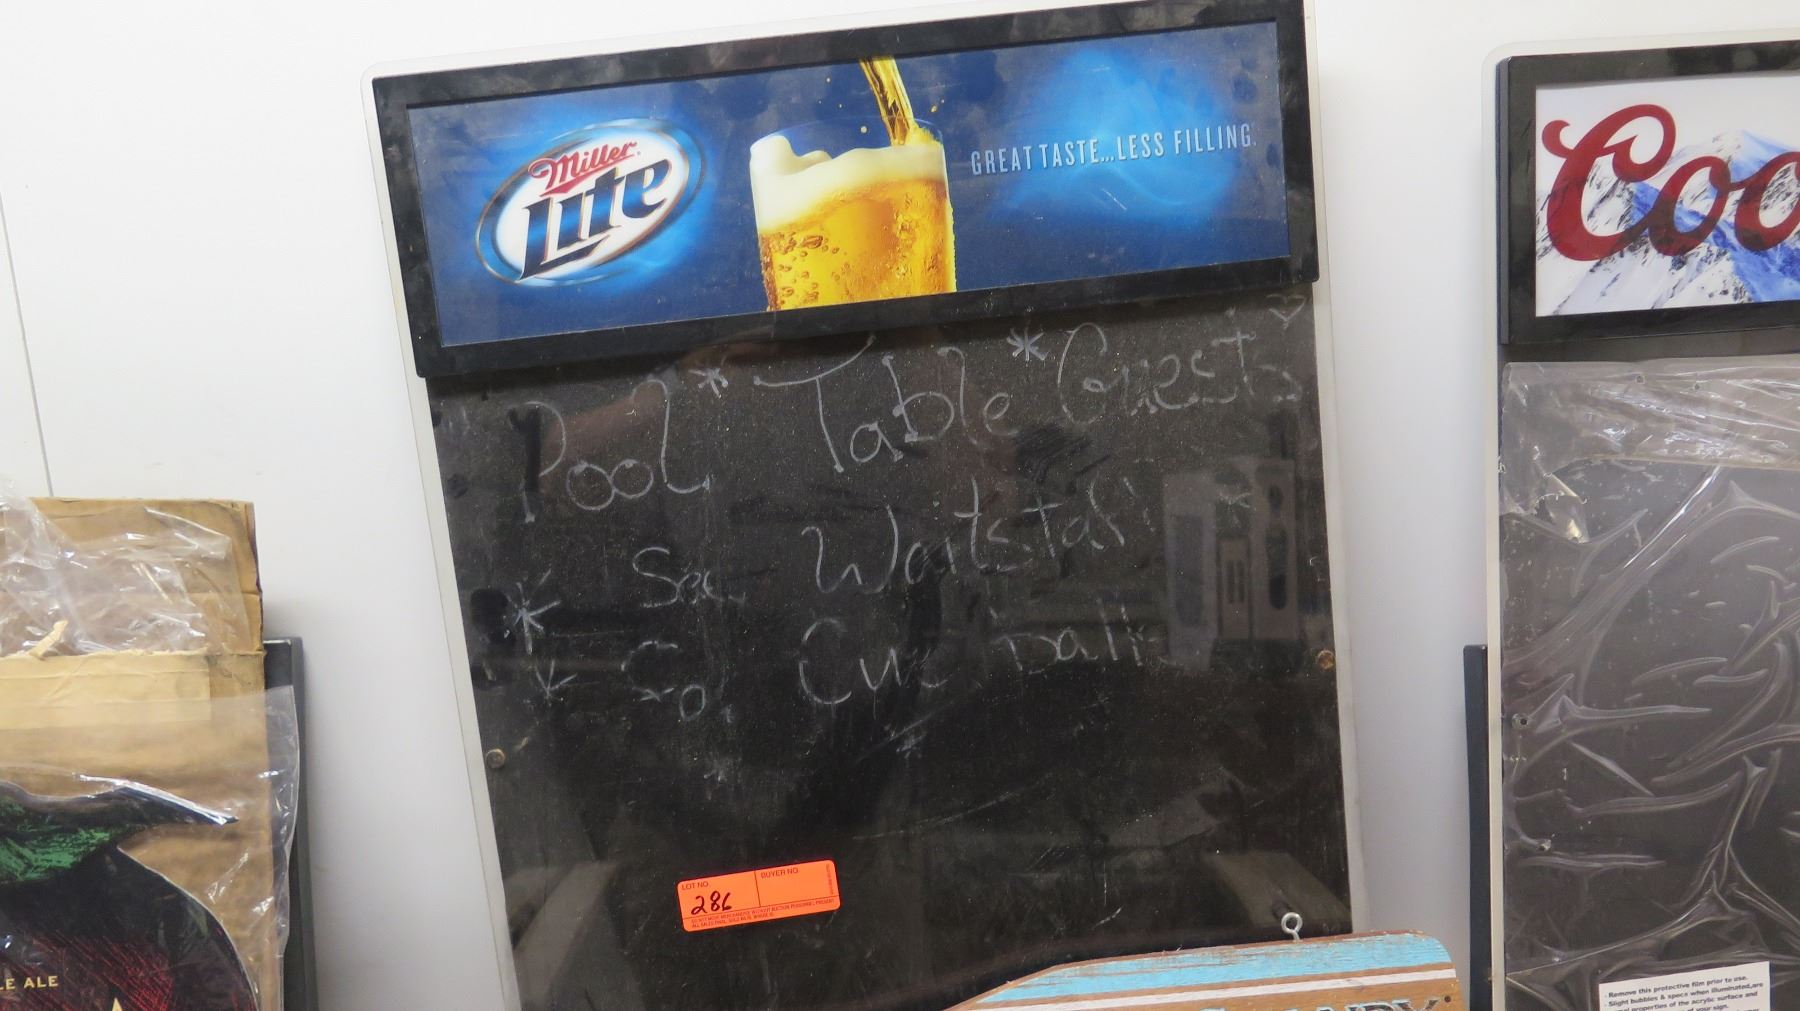 Miller
Lite
GREAT TASTE...LESS FILLING.
Pool * Table * Guests
See Waitstaff
Cue ball
LOT NO.
286
BUYER NO.
Coo
LE ALE
- Remove this protective film prior to use.
- Slight bubbles & specs when illuminated, are
properties of the acrylic surface and
of your sign.